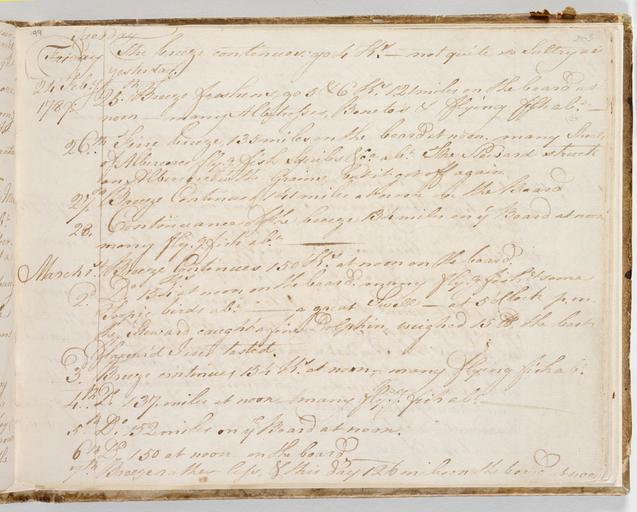 Friday The breeze continues, go 4 Kts — not quite so Sultry as
yesterday.
24 Feb.
1787. 25. Breeze freshens, go 5 & 6 Kts 121 miles on the board at
noon — many Albetrosses, Bonetos & flying fish abt —
26th fine breeze, 135 miles on the board at noon, many Shoals
of Albercores, fly.g fish &c abt. The Steward struck
an Albercore with Grains, but it got off again.
27. Breeze Continues 141 miles at noon on the Board
28. Continuance of the breeze 134 miles on ye Board at noon
many fly.g fish abt
March 1st Breeze Continues 150 Kts at noon on the board.
2d Do at noon on the board many fly.g fish & some
Tropic birds abt — a great Swell — at 5 oClock p.m.
the Steward caught a fine Dolphin, weighed 15 lb the best
flavored I ever tasted.
3. Breeze continues, 134 Kts at noon, many flying fish abt.
4th Do 137 miles at noon many flying fish abt
5th Do 152 miles on ye Board at noon.
6th Do 150 at noon on the board
7th Breeze rather less, & this day 126 miles on the board at noon